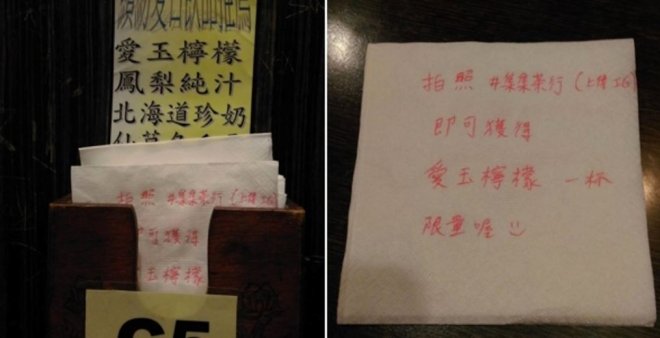 愛玉檸檬
鳳梨純汁
北海道珍奶
拍照 #集集茶行(上傳IG)
可獲得
玉檸檬
拍照 #集集茶行(上傳IG)
即可獲得
愛玉檸檬 一杯
限量喔